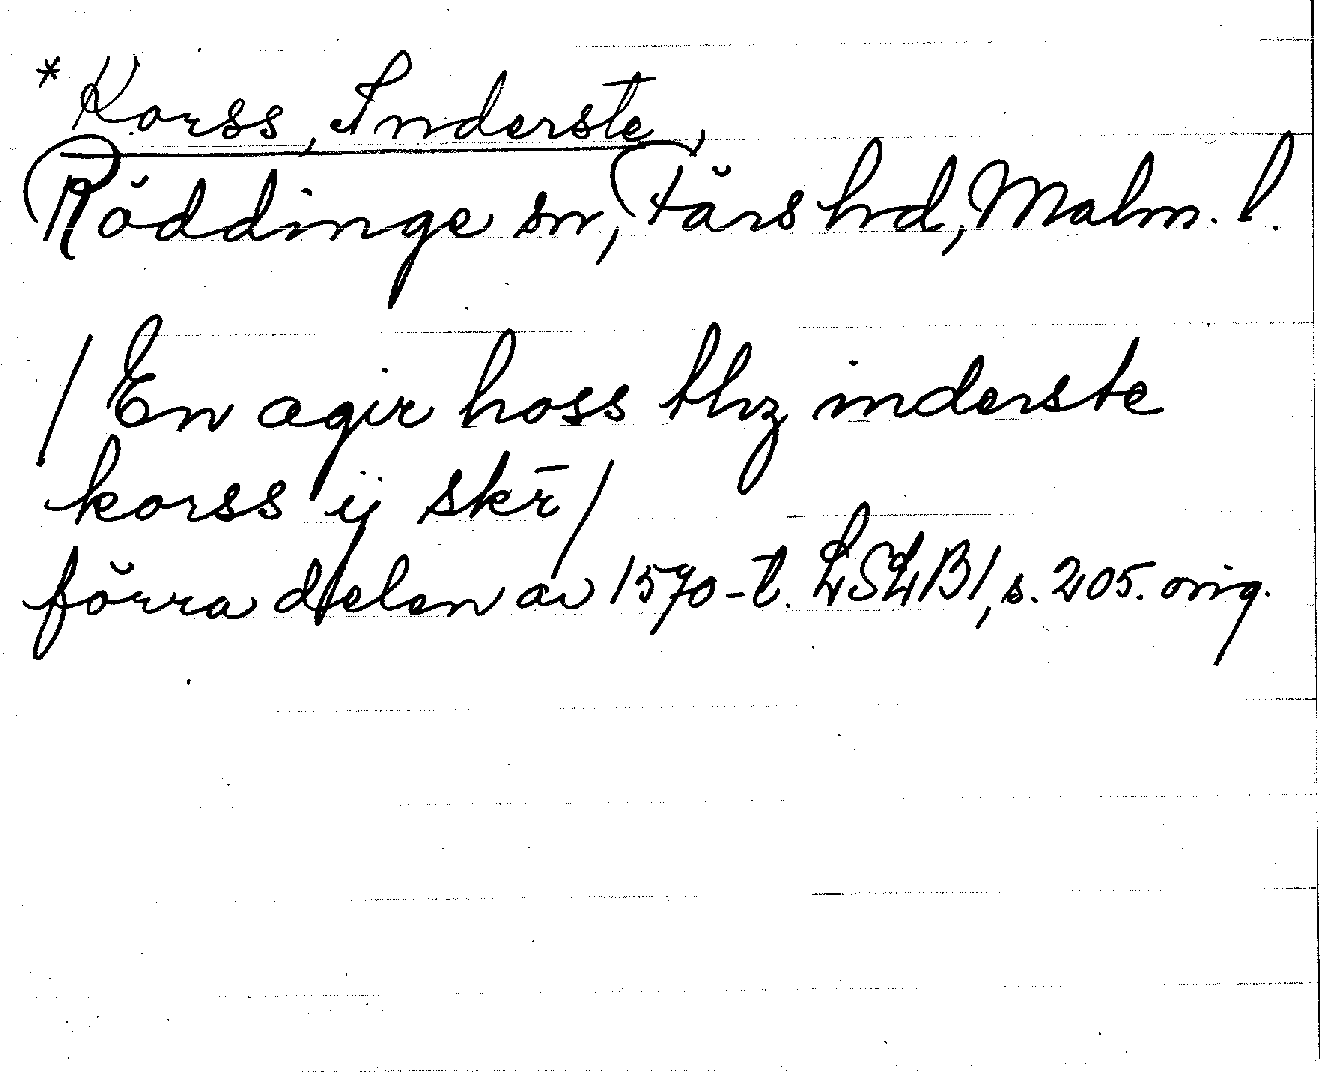 *Korss, Inderste,
Röddinge sn, Färs hd, Malm. l.
/ En agir hoss thz inderste
korss ij skr̄ /
förra delen av 1570-t. LSLB1, s. 205. orig.